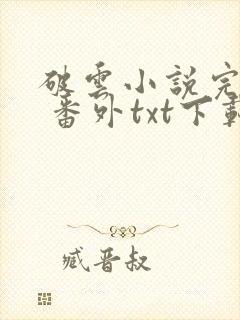 破雲小説完
番外txt下載
臧晋叔